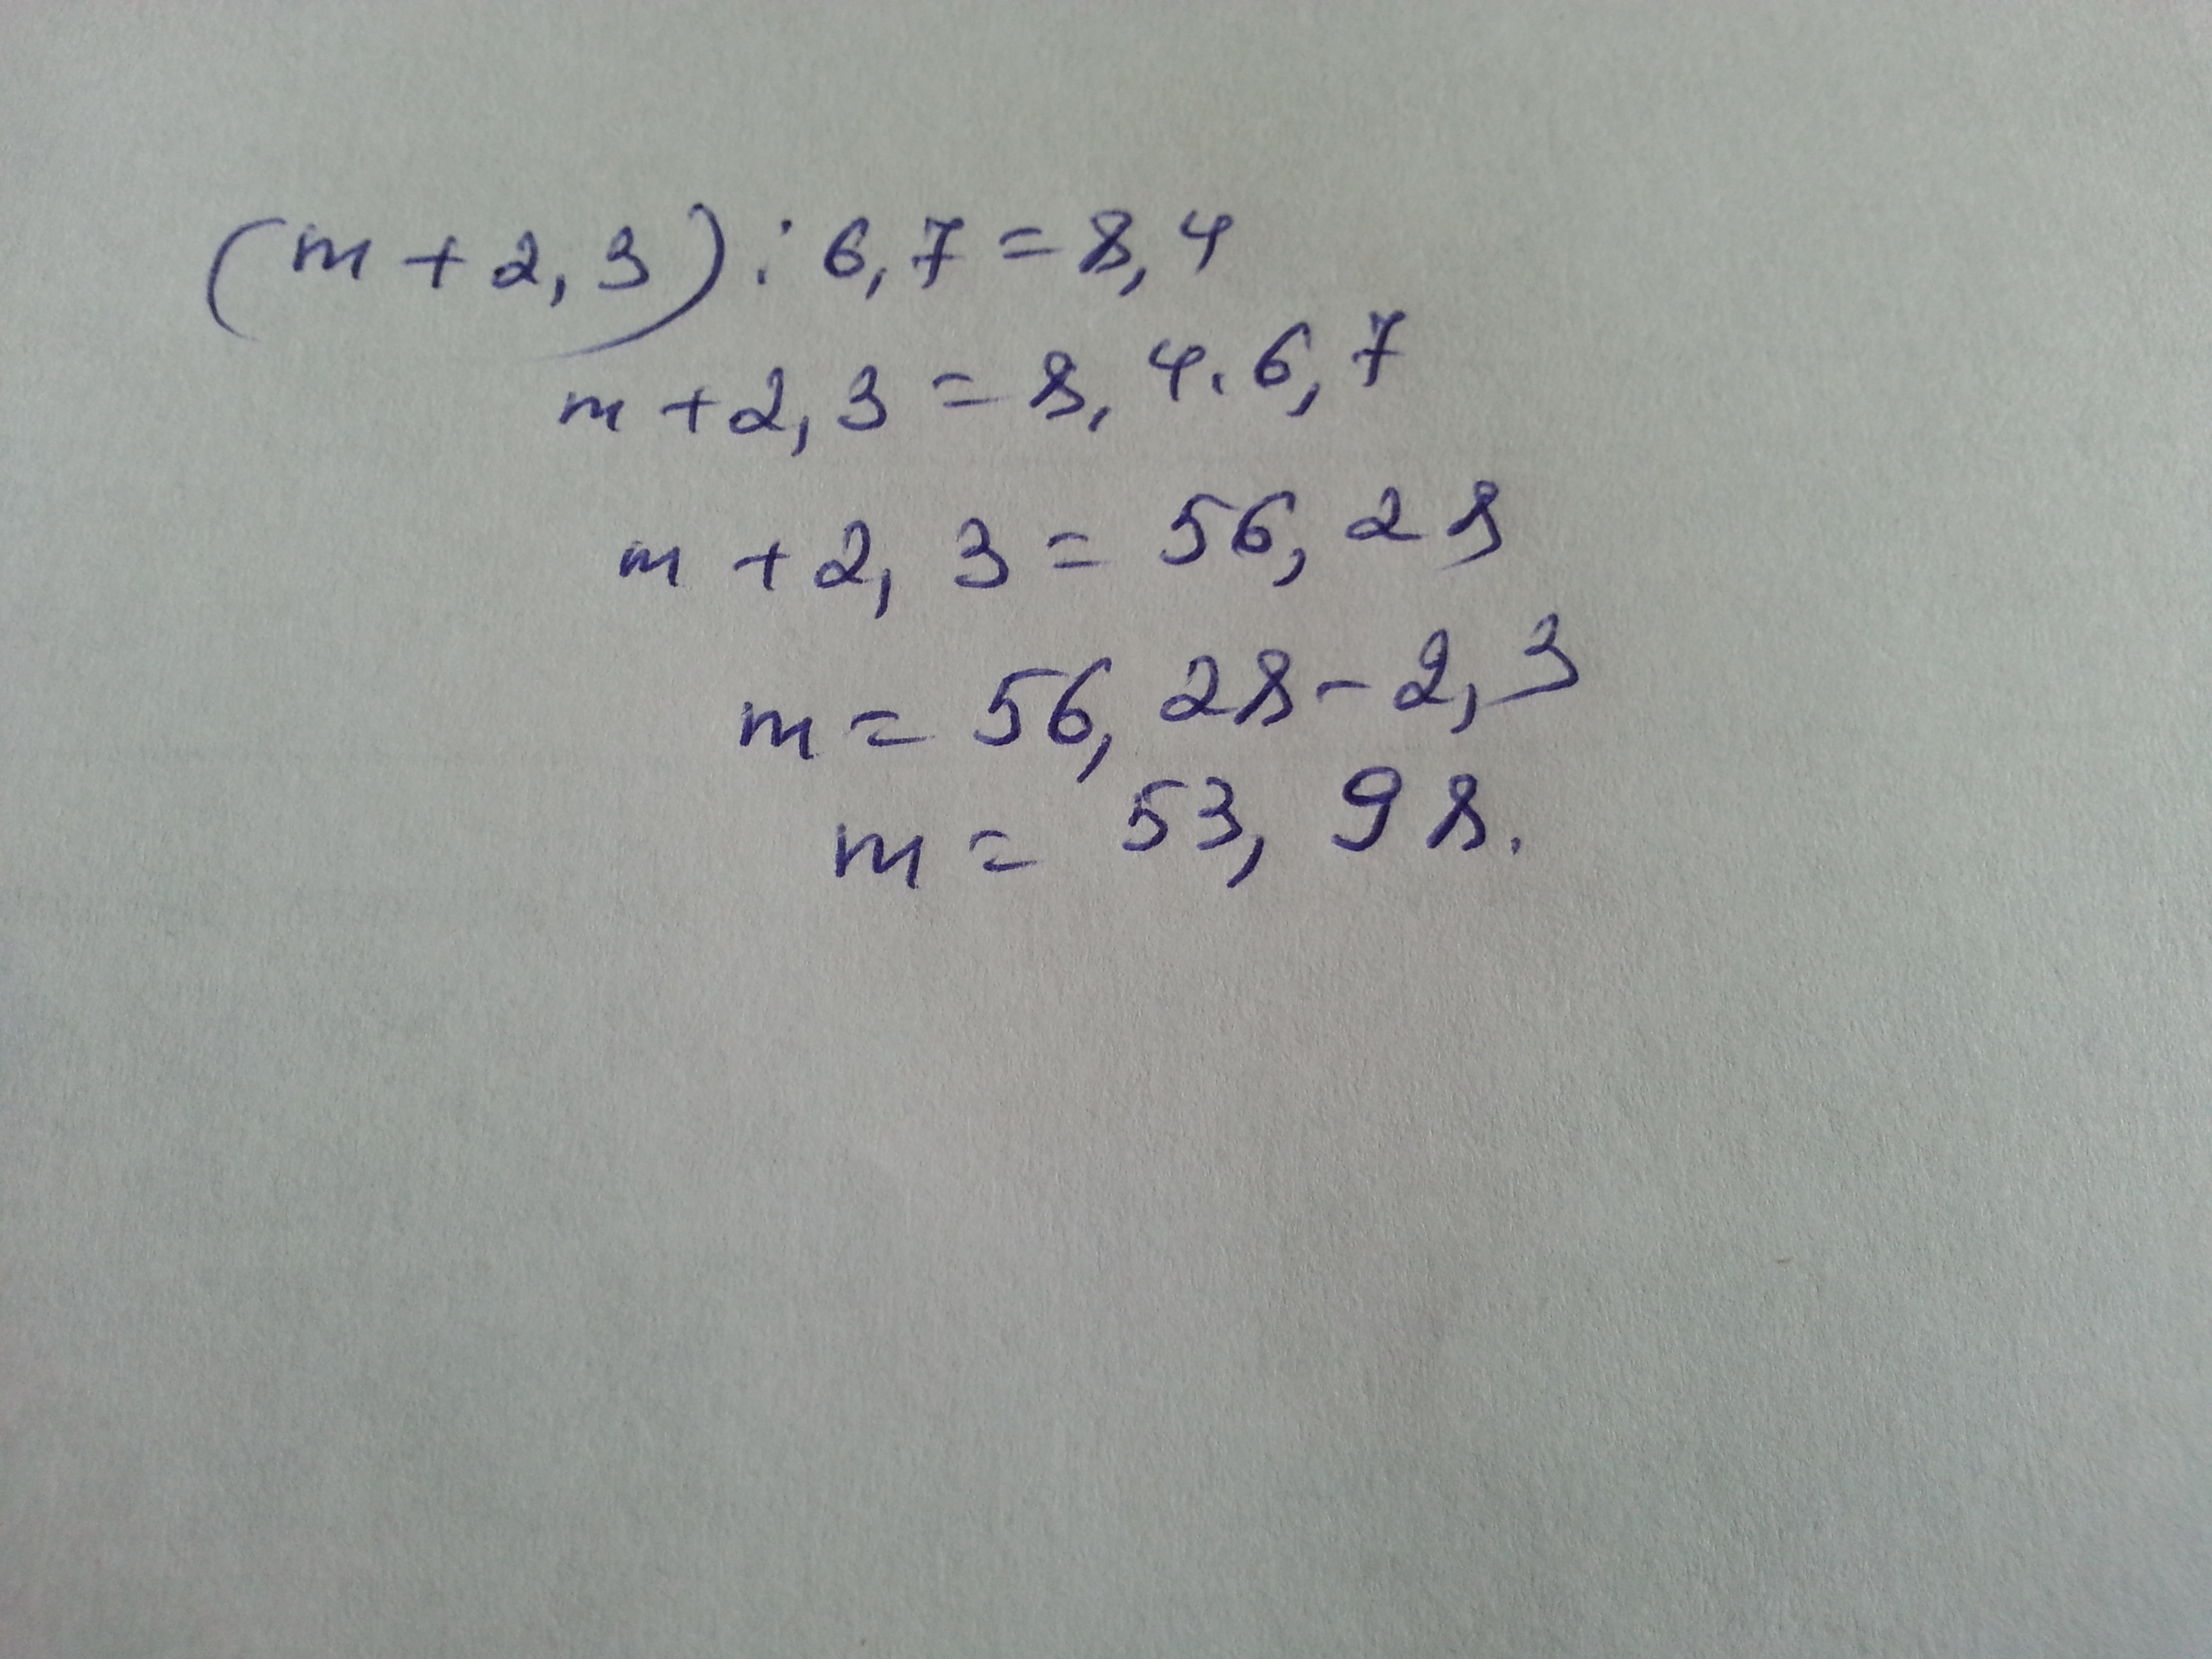 (m+2,3):6,7=8,4
m+2,3=8,4.6,7
m+2,3=56,28
m=56,28-2,3
m=53,98.